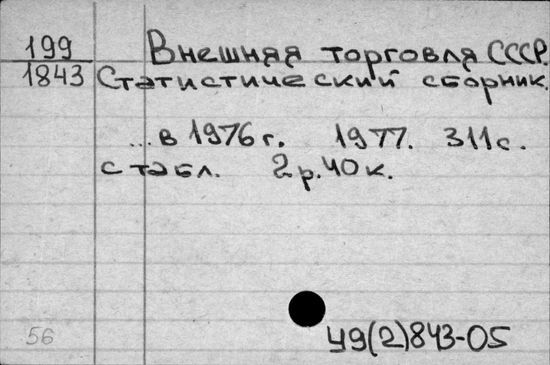 199 Внешняя торговля СССР.
1843 Статистический сборник.
...в 1976 г. 1977. 311 с.
с табл. 2 р. 40 к.
56
У9(2)843-05